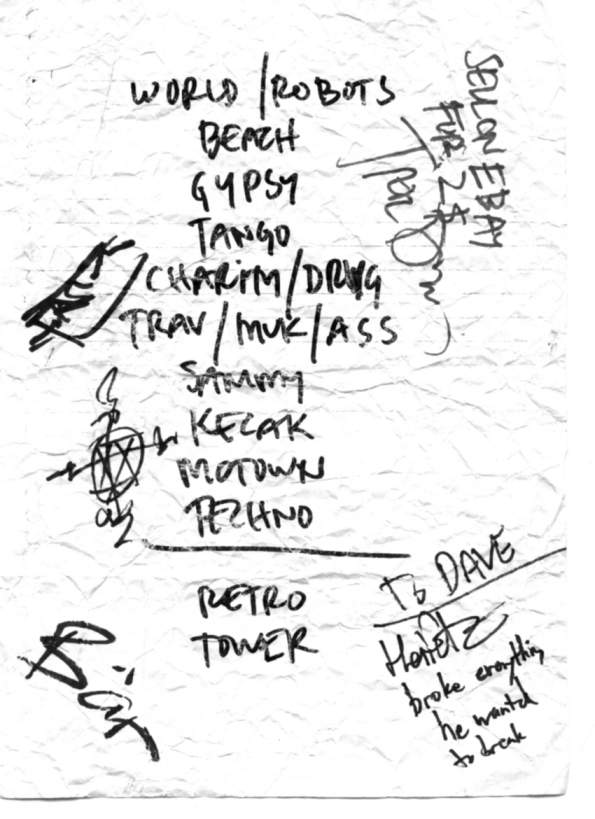 WORLD / ROBOTS
BEACH
GYPSY
TANGO
CHARIM / DRUG
TRAV / MUK / ASS
SAMMY
KECAK
MOTOWN
TECHNO
RETRO
TOWER
SELL ON EBAY
FUR 2$
To DAVE
Heifetz
broke everything
he wanted
to break